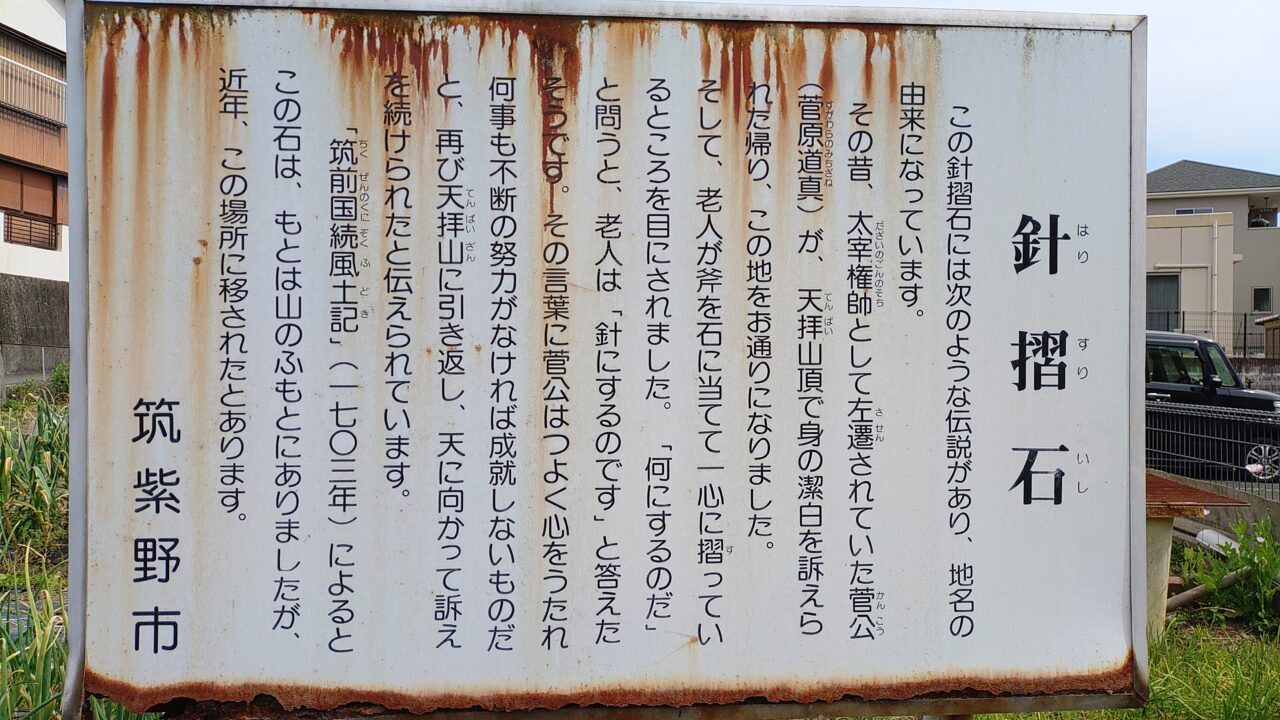 針摺石
はりすりいし
この針摺石には次のような伝説があり、地名の
由来になっています。
その昔、太宰権帥として左遷されていた菅公
だざいのごんのそち
させん
かんこう
(菅原道真)が、天拝山頂で身の潔白を訴えら
すがわらのみちざね
てんぱい
れた帰り、この地をお通りになりました。
そして、老人が斧を石に当てて一心に摺ってい
す
るところを目にされました。「何にするのだ」
と問うと、老人は「針にするのです」と答えた
そうです。その言葉に菅公はつよく心をうたれ
何事も不断の努力がなければ成就しないものだ
と、再び天拝山に引き返し、天に向かって訴え
てんぱいざん
を続けられたと伝えられています。
「筑前国続風土記」(一七〇三年)によると
ちくぜんのくにぞくふどき
この石は、もとは山のふもとにありましたが、
近年、この場所に移されたとあります。
筑紫野市